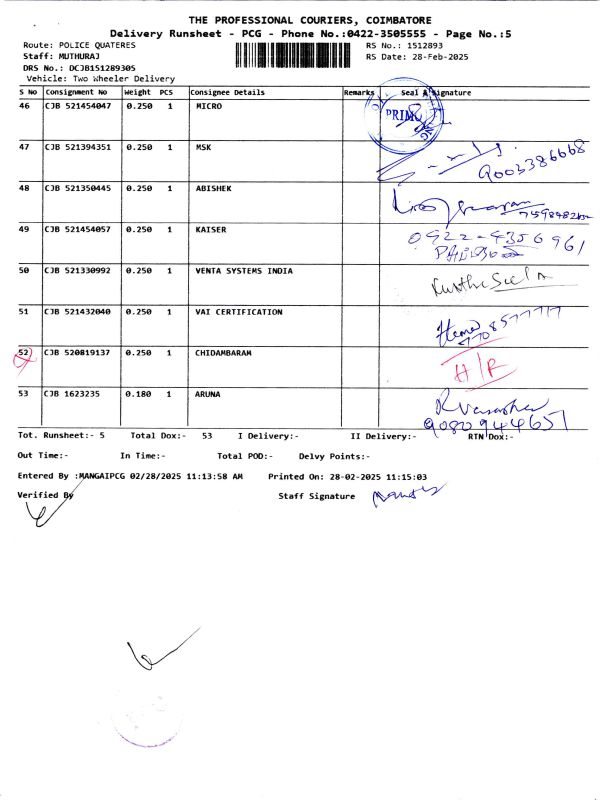 THE PROFESSIONAL COURIERS, COIMBATORE
Delivery Runsheet - PCG - Phone No.:0422-3505555 - Page No.:5
Route: POLICE QUATERES RS No.: 1512893
Staff: MUTHURAJ RS Date: 28-Feb-2025
DRS No.: DCJB151289305
Vehicle: Two Wheeler Delivery
S No Consignment No Weight PCS Consignee Details Remarks Seal & Signature
46 CJB 521454047 0.250 1 MICRO PRIM
47 CJB 521394351 0.250 1 MSK 9003386668
48 CJB 521350445 0.250 1 ABISHEK
49 CJB 521454057 0.250 1 KAISER 0922-4356961
50 CJB 521330992 0.250 1 VENTA SYSTEMS INDIA
51 CJB 521432040 0.250 1 VAI CERTIFICATION Hema
7708577717
52 CJB 520819137 0.250 1 CHIDAMBARAM H/R
53 CJB 1623235 0.180 1 ARUNA
9080944651
Tot. Runsheet:- 5 Total Dox:- 53 I Delivery:- II Delivery:- RTN Dox:-
Out Time:- In Time:- Total POD:- Delvy Points:-
Entered By :MANGAIPCG 02/28/2025 11:13:58 AM Printed On: 28-02-2025 11:15:03
Verified By Staff Signature